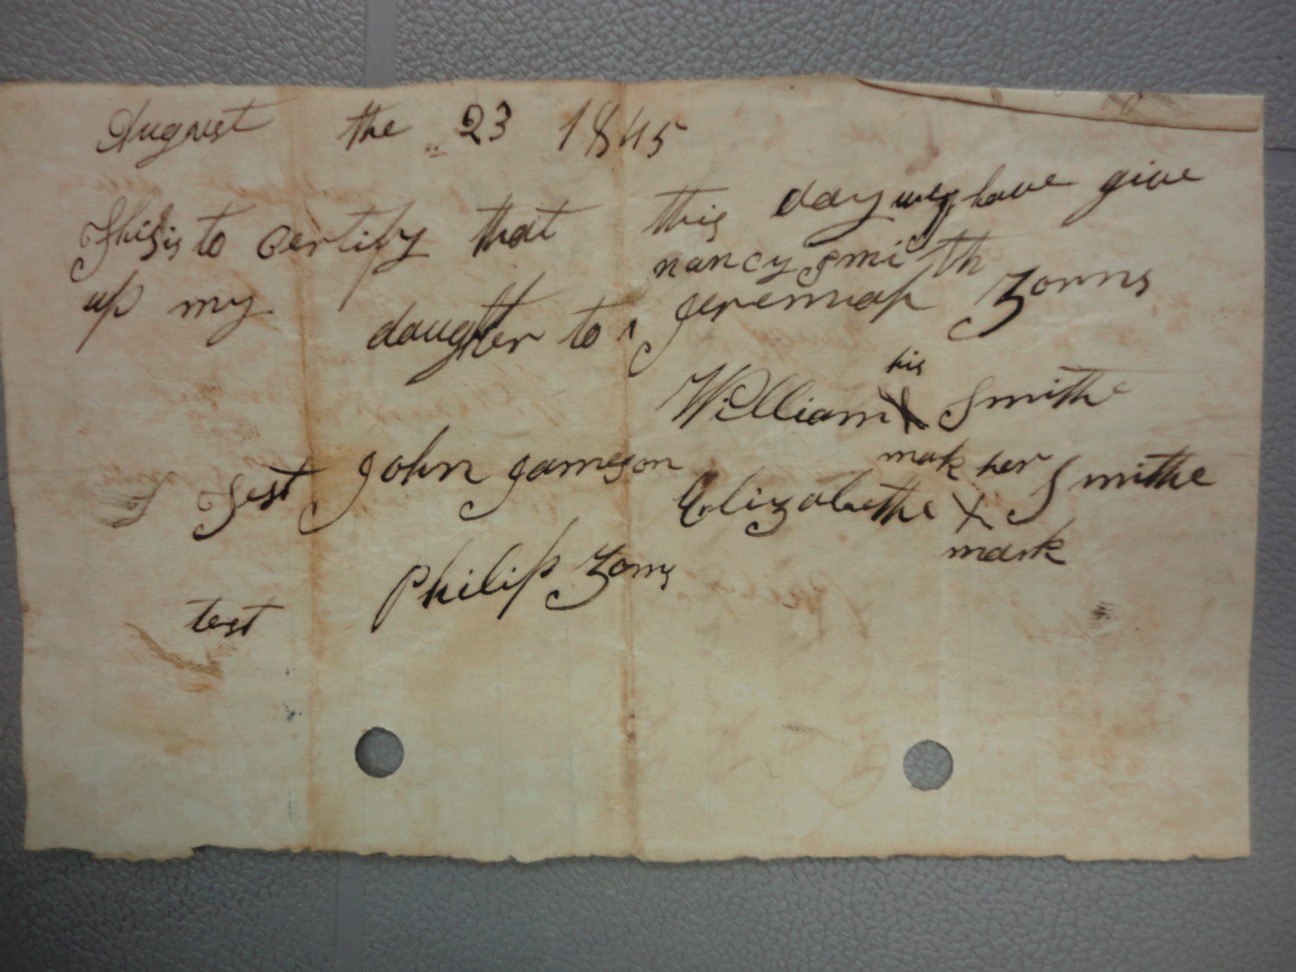 August the 23 1845
This is to certify that this day wey have give
up my nancy smith
daughter to Jeremiah Zorns
his
William X Smithe
mak
Test John Jameson
her
Elizabethe X Smithe
mark
test Philip Zorns